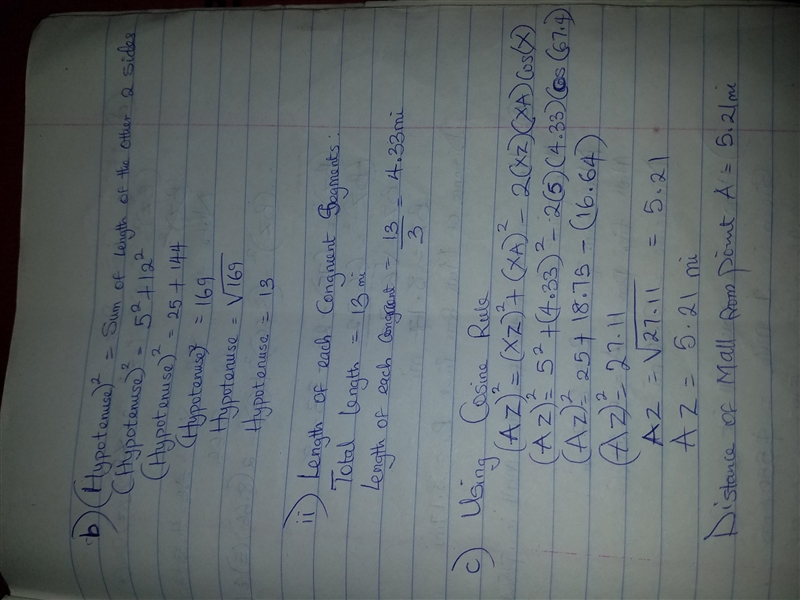 b) (Hypotenuse)² = Sum of length of the other 2 sides
(Hypotenuse)² = 5² + 12²
(Hypotenuse)² = 25 + 144
(Hypotenuse)² = 169
Hypotenuse = √169
Hypotenuse = 13
ii) Length of each Congruent Segments:
Total length = 13 mi
Length of each congruent = 13/3 = 4.33 mi
c) Using Cosine Rule
(AZ)² = (XZ)² + (XA)² - 2(XZ)(XA) Cos(X)
(AZ)² = 5² + (4.33)² - 2(5)(4.33) Cos(67.4)
(AZ)² = 25 + 18.75 - (16.64)
(AZ)² = 27.11
AZ = √27.11 = 5.21
AZ = 5.21 mi
Distance of Mall from point A = 5.21 mi